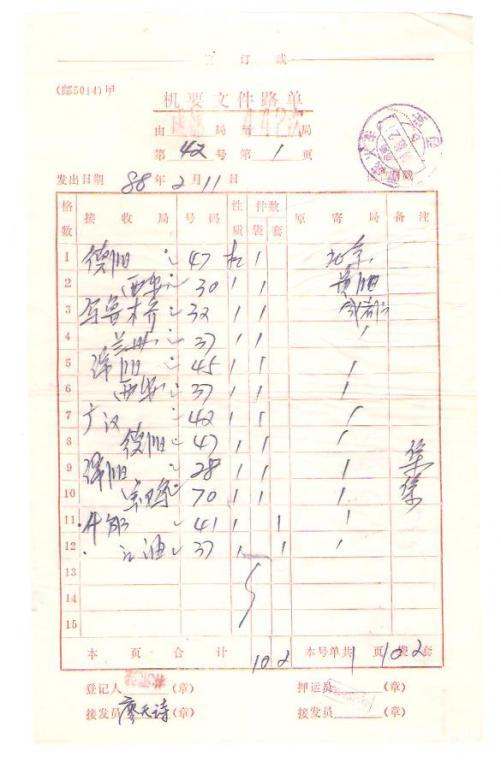 订
(邮5014)甲
机要文件路单
由 局 至 442次 局
第 42 号 第 1 页
发出日期 88 年 2 月 11 日
格数 接收局 号码 性质 件数 袋 套 原寄局 备注
1 德阳 47 机 1 北京
2 西安 30 1 1
3 乌鲁木齐 32 1 1 成都
4 兰州 37 1 1 1
5 绵阳 45 1 1 1
6 西安 37 1 1 1
7 广汉 42 1 1 1
8 德阳 47 1 1 1
9 绵阳 28 1 1 1
10 宝鸡 70 1 1 1
11 什邡 41 1 1 1
12 江油 37 1 1 1
13
14
15
本页合计 10 2 本号单共 1 页 10 袋 2 套
登记人 (章) 押运员 (章)
接发员 廖天诗 (章) 接发员 (章)